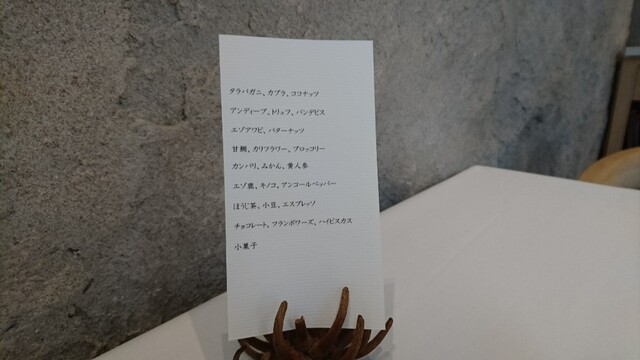 タラバガニ、カブラ、ココナッツ
アンディーブ、トリュフ、パンデピス
エゾアワビ、バターナッツ
甘鯛、カリフラワー、ブロッコリー
カンパリ、みかん、黄人参
エゾ鹿、キノコ、アンコールペッパー
ほうじ茶、小豆、エスプレッソ
チョコレート、フランボワーズ、ハイビスカス
小菓子